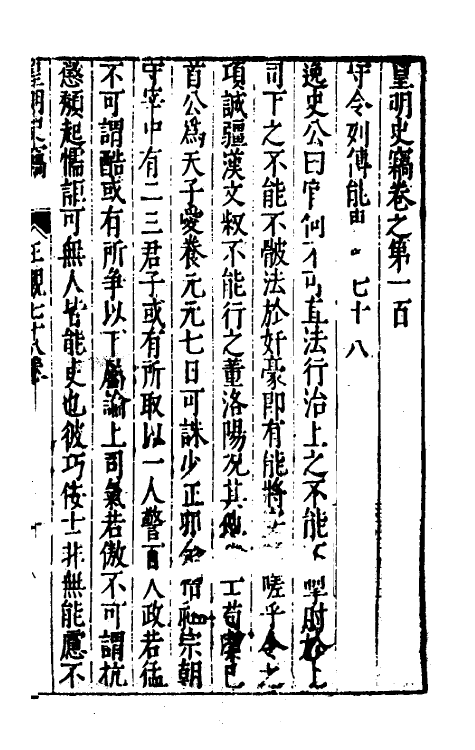 皇明史竊卷之第一百
守令列傳能 七十八
逸史公曰官何不可直法行治上之不能 掣肘於上
司下之不能不骰法於奸豪即有能將 嗟乎令之
項誠疆漢文叔不能行之董洛陽况其他 工苟 已
首公爲天子愛養元元七日可誅少正邪 祖宗朝
守宰中有二三君子或有所取以一人警百人政若猛
不可謂酷或有所爭以下屬論上司氣若傲不可謂抗
懲頹起懦詎可無人皆能吏也彼巧佞士非無能慮不
皇明史竊 王觀七十八卷